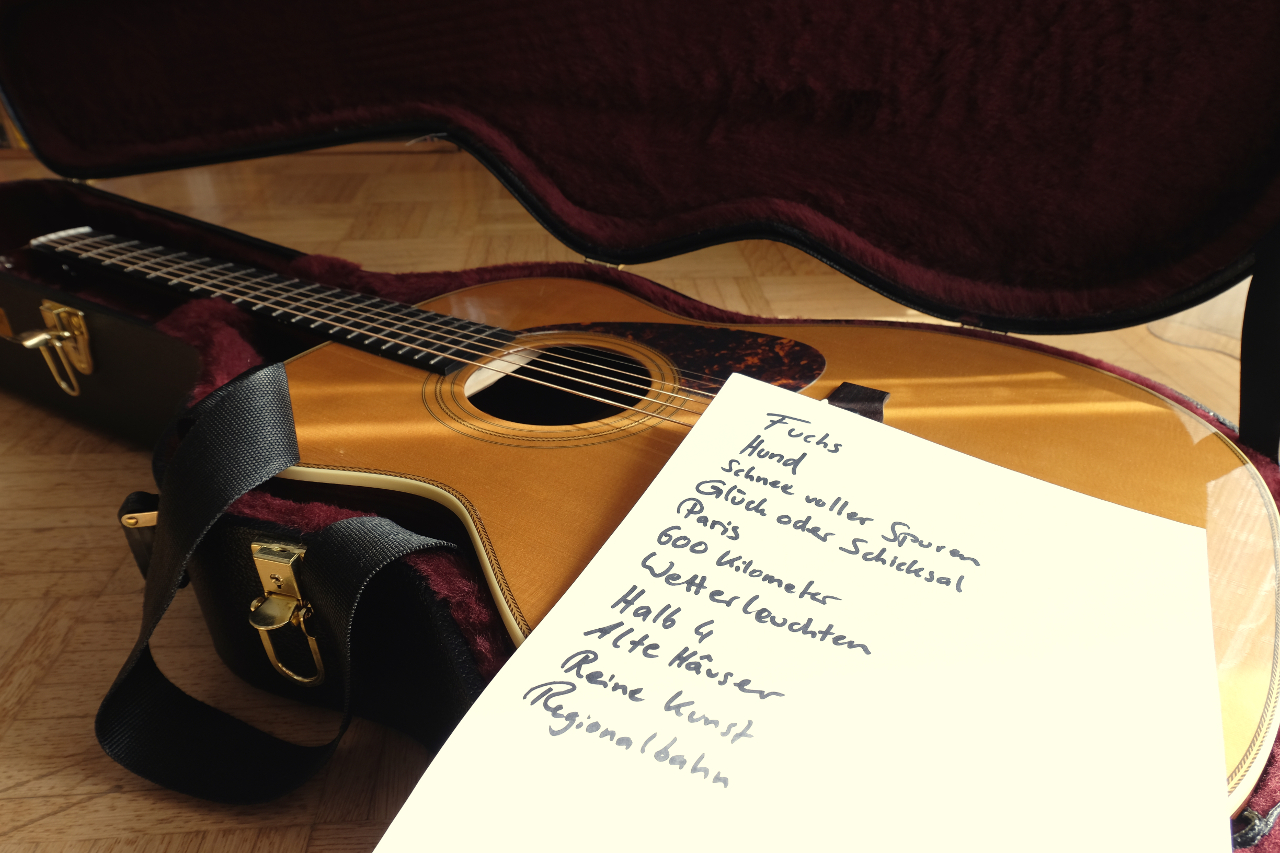 Fuchs
Hund
Schnee voller Spuren
Glück oder Schicksal
Paris
600 Kilometer
Wetterleuchten
Halb 4
Alte Häuser
Reine Kunst
Regionalbahn